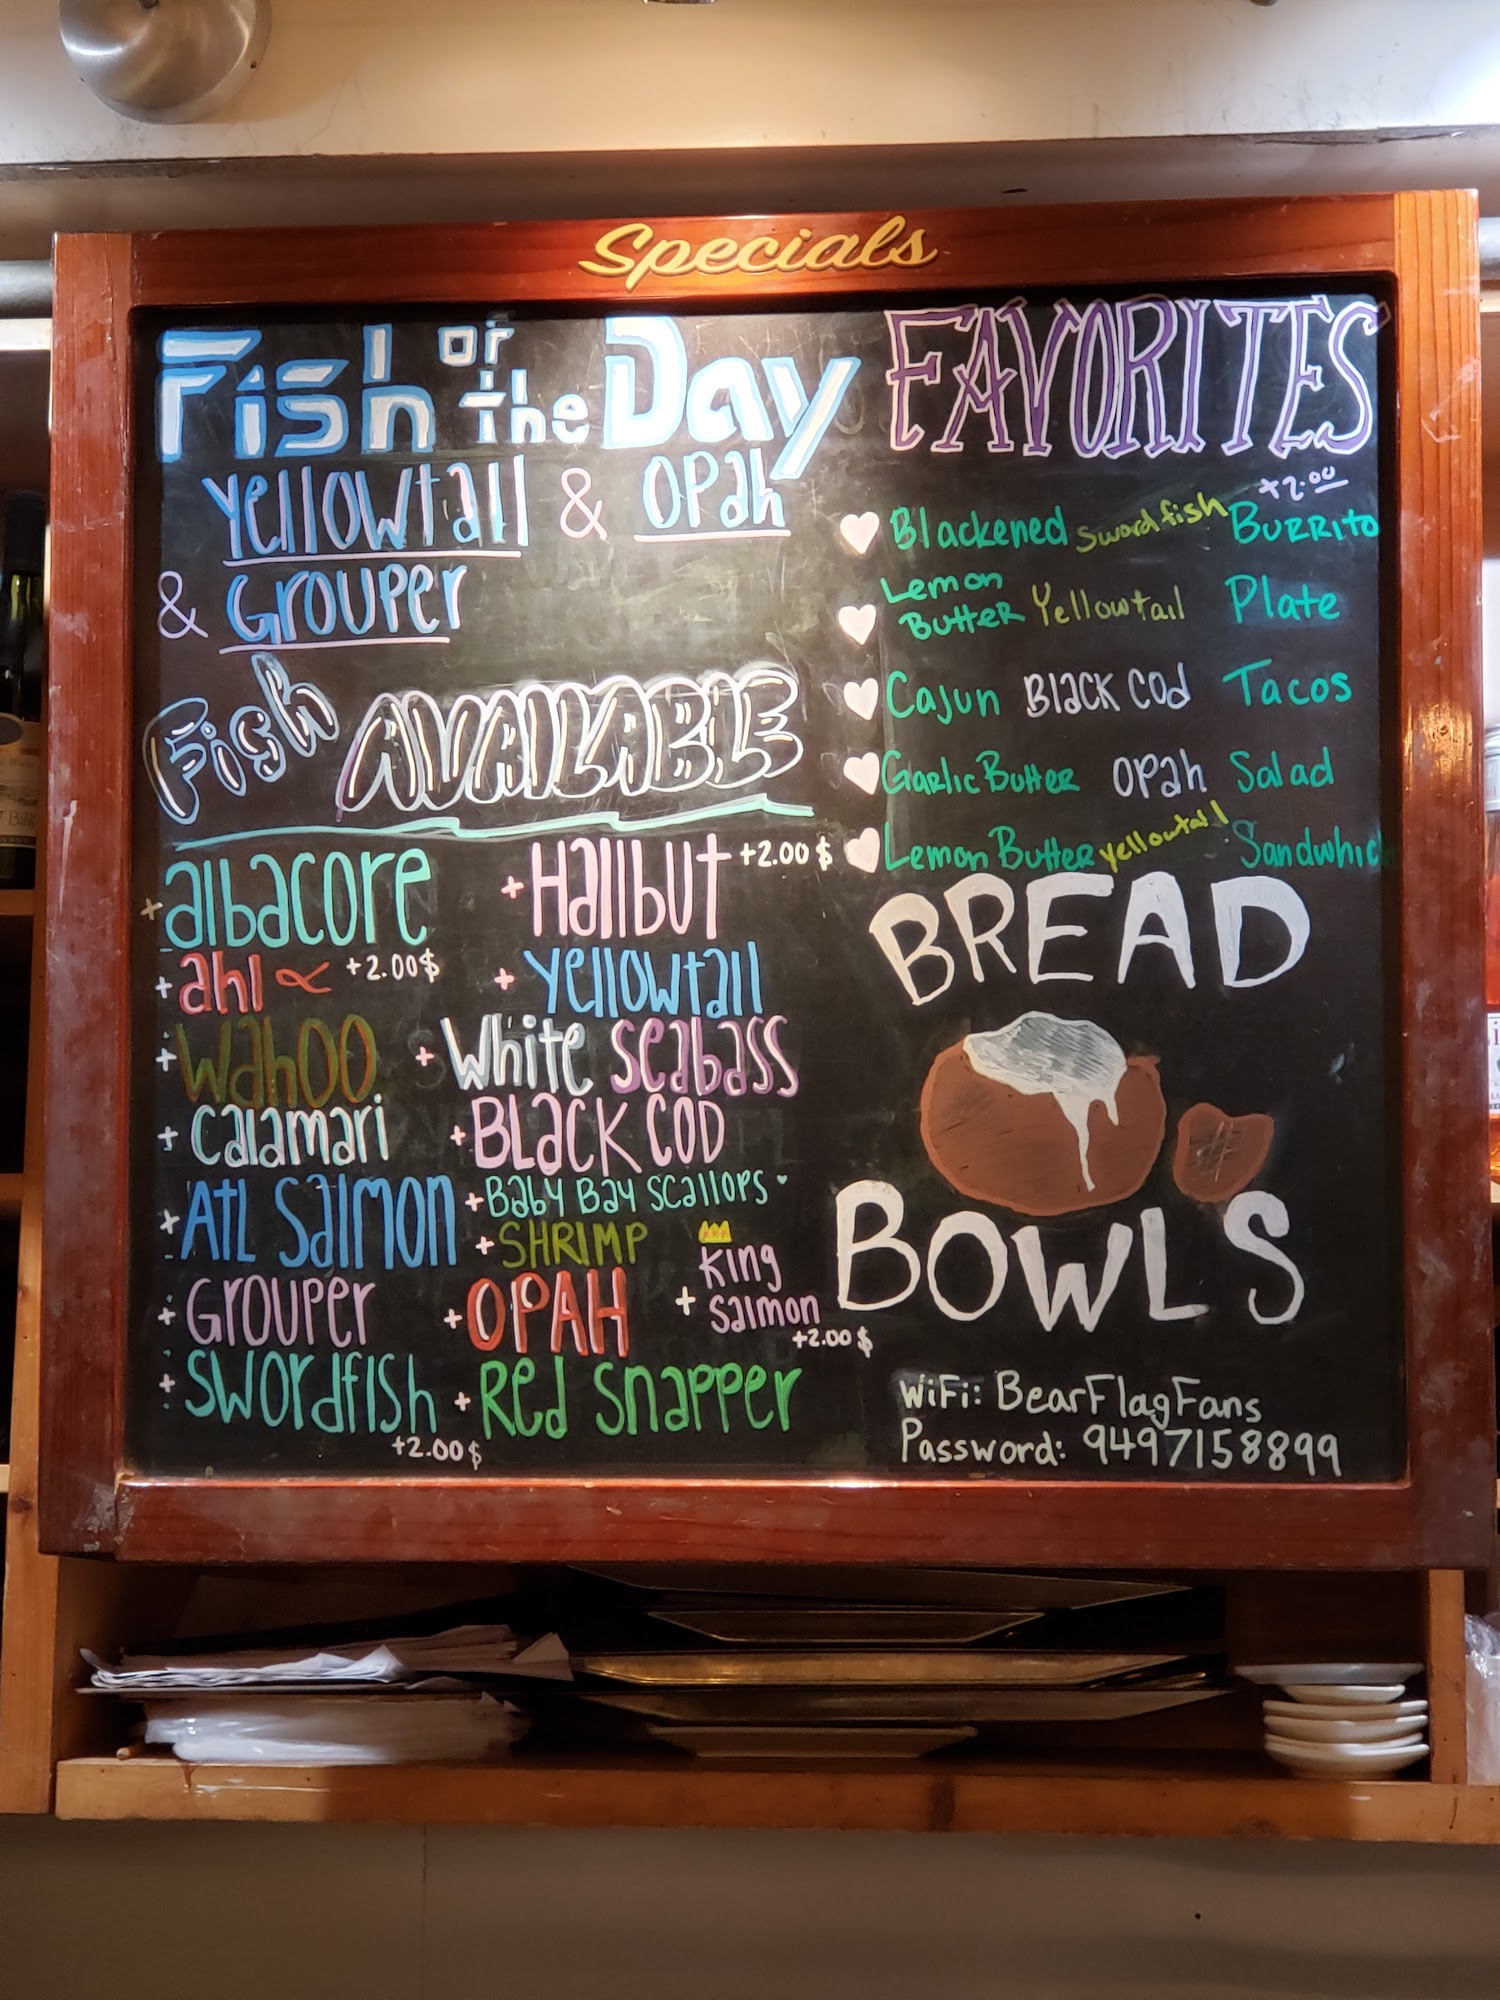 Specials
Fish of the Day
Yellowtail & Opah
& Grouper
Fish AVAILABLE
+ albacore
+ ahi +2.00$
+ wahoo
+ calamari
+ Atl Salmon
+ Grouper
+ Swordfish
+2.00$
+ Halibut +2.00$
+ Yellowtail
+ White Seabass
+ Black Cod
+ Baby Bay Scallops
+ SHRIMP
+ OPAH
+ King Salmon
+2.00$
+ Red Snapper
FAVORITES
+2.00
Blackened Swordfish Burrito
Lemon Butter Yellowtail Plate
Cajun Black Cod Tacos
Garlic Butter Opah Salad
Lemon Butter yellowtail Sandwhich
BREAD
BOWLS
WiFi: BearFlagFans
Password: 9497158899